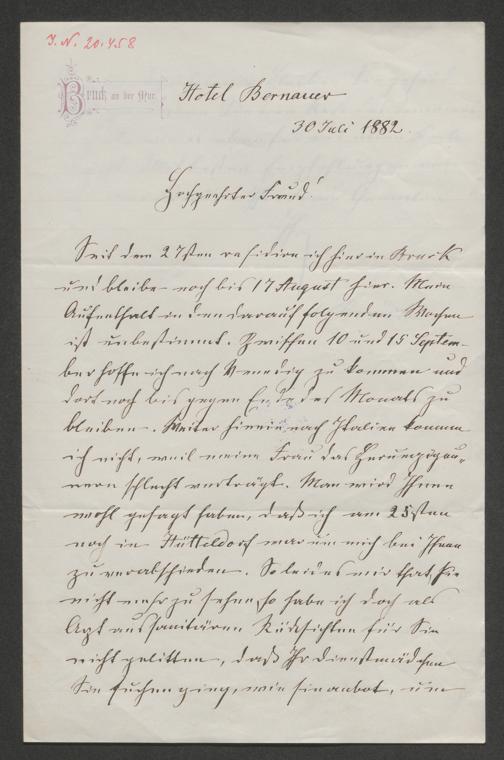 J.N. 20.458
Bruck an der Mur.
Hotel Bernauer
30 Juli 1882.
Hochgeehrter Freund!
Seit dem 27sten residire ich hier in Bruck
und bleibe noch bis 17 August hier. Mein
Aufenthalt in den darauf folgenden Wochen
ist unbestimmt. Zwischen 10 und 15 Septem-
ber hoffe ich nach Venedig zu kommen und
dort noch bis gegen Ende des Monats zu
bleiben. Weiter hinein nach Italien komme
ich nicht, weil meine Frau das
schlecht verträgt. Man wird Ihnen
wohl gesagt haben, daß ich am 25sten
noch in Hütteldorf war um mich bei Ihnen
zu verabschieden. So leid es mir that, Sie
nicht mehr zu sehen, so habe ich doch als
Arzt aus sanitären Rücksichten für Sie
nicht gelitten, daß Ihr Dienstmädchen
Sie suchen ging, wie sie anbot, um